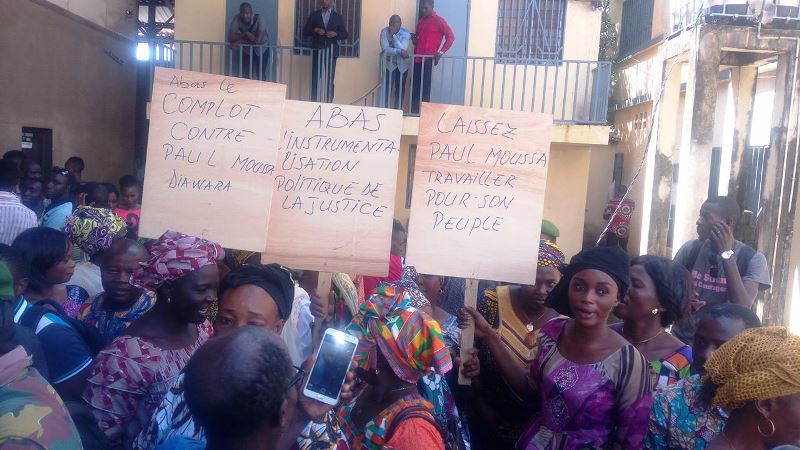 Abas le
COMPLOT
CONTRE
PAUL MOUSSA
DIAWARA
ABAS
L'INSTRUMENTA
LISATION
POLITIQUE DE
LA JUSTICE
LAISSEZ
PAUL MOUSSA
TRAVAILLER
POUR SON
PEUPLE